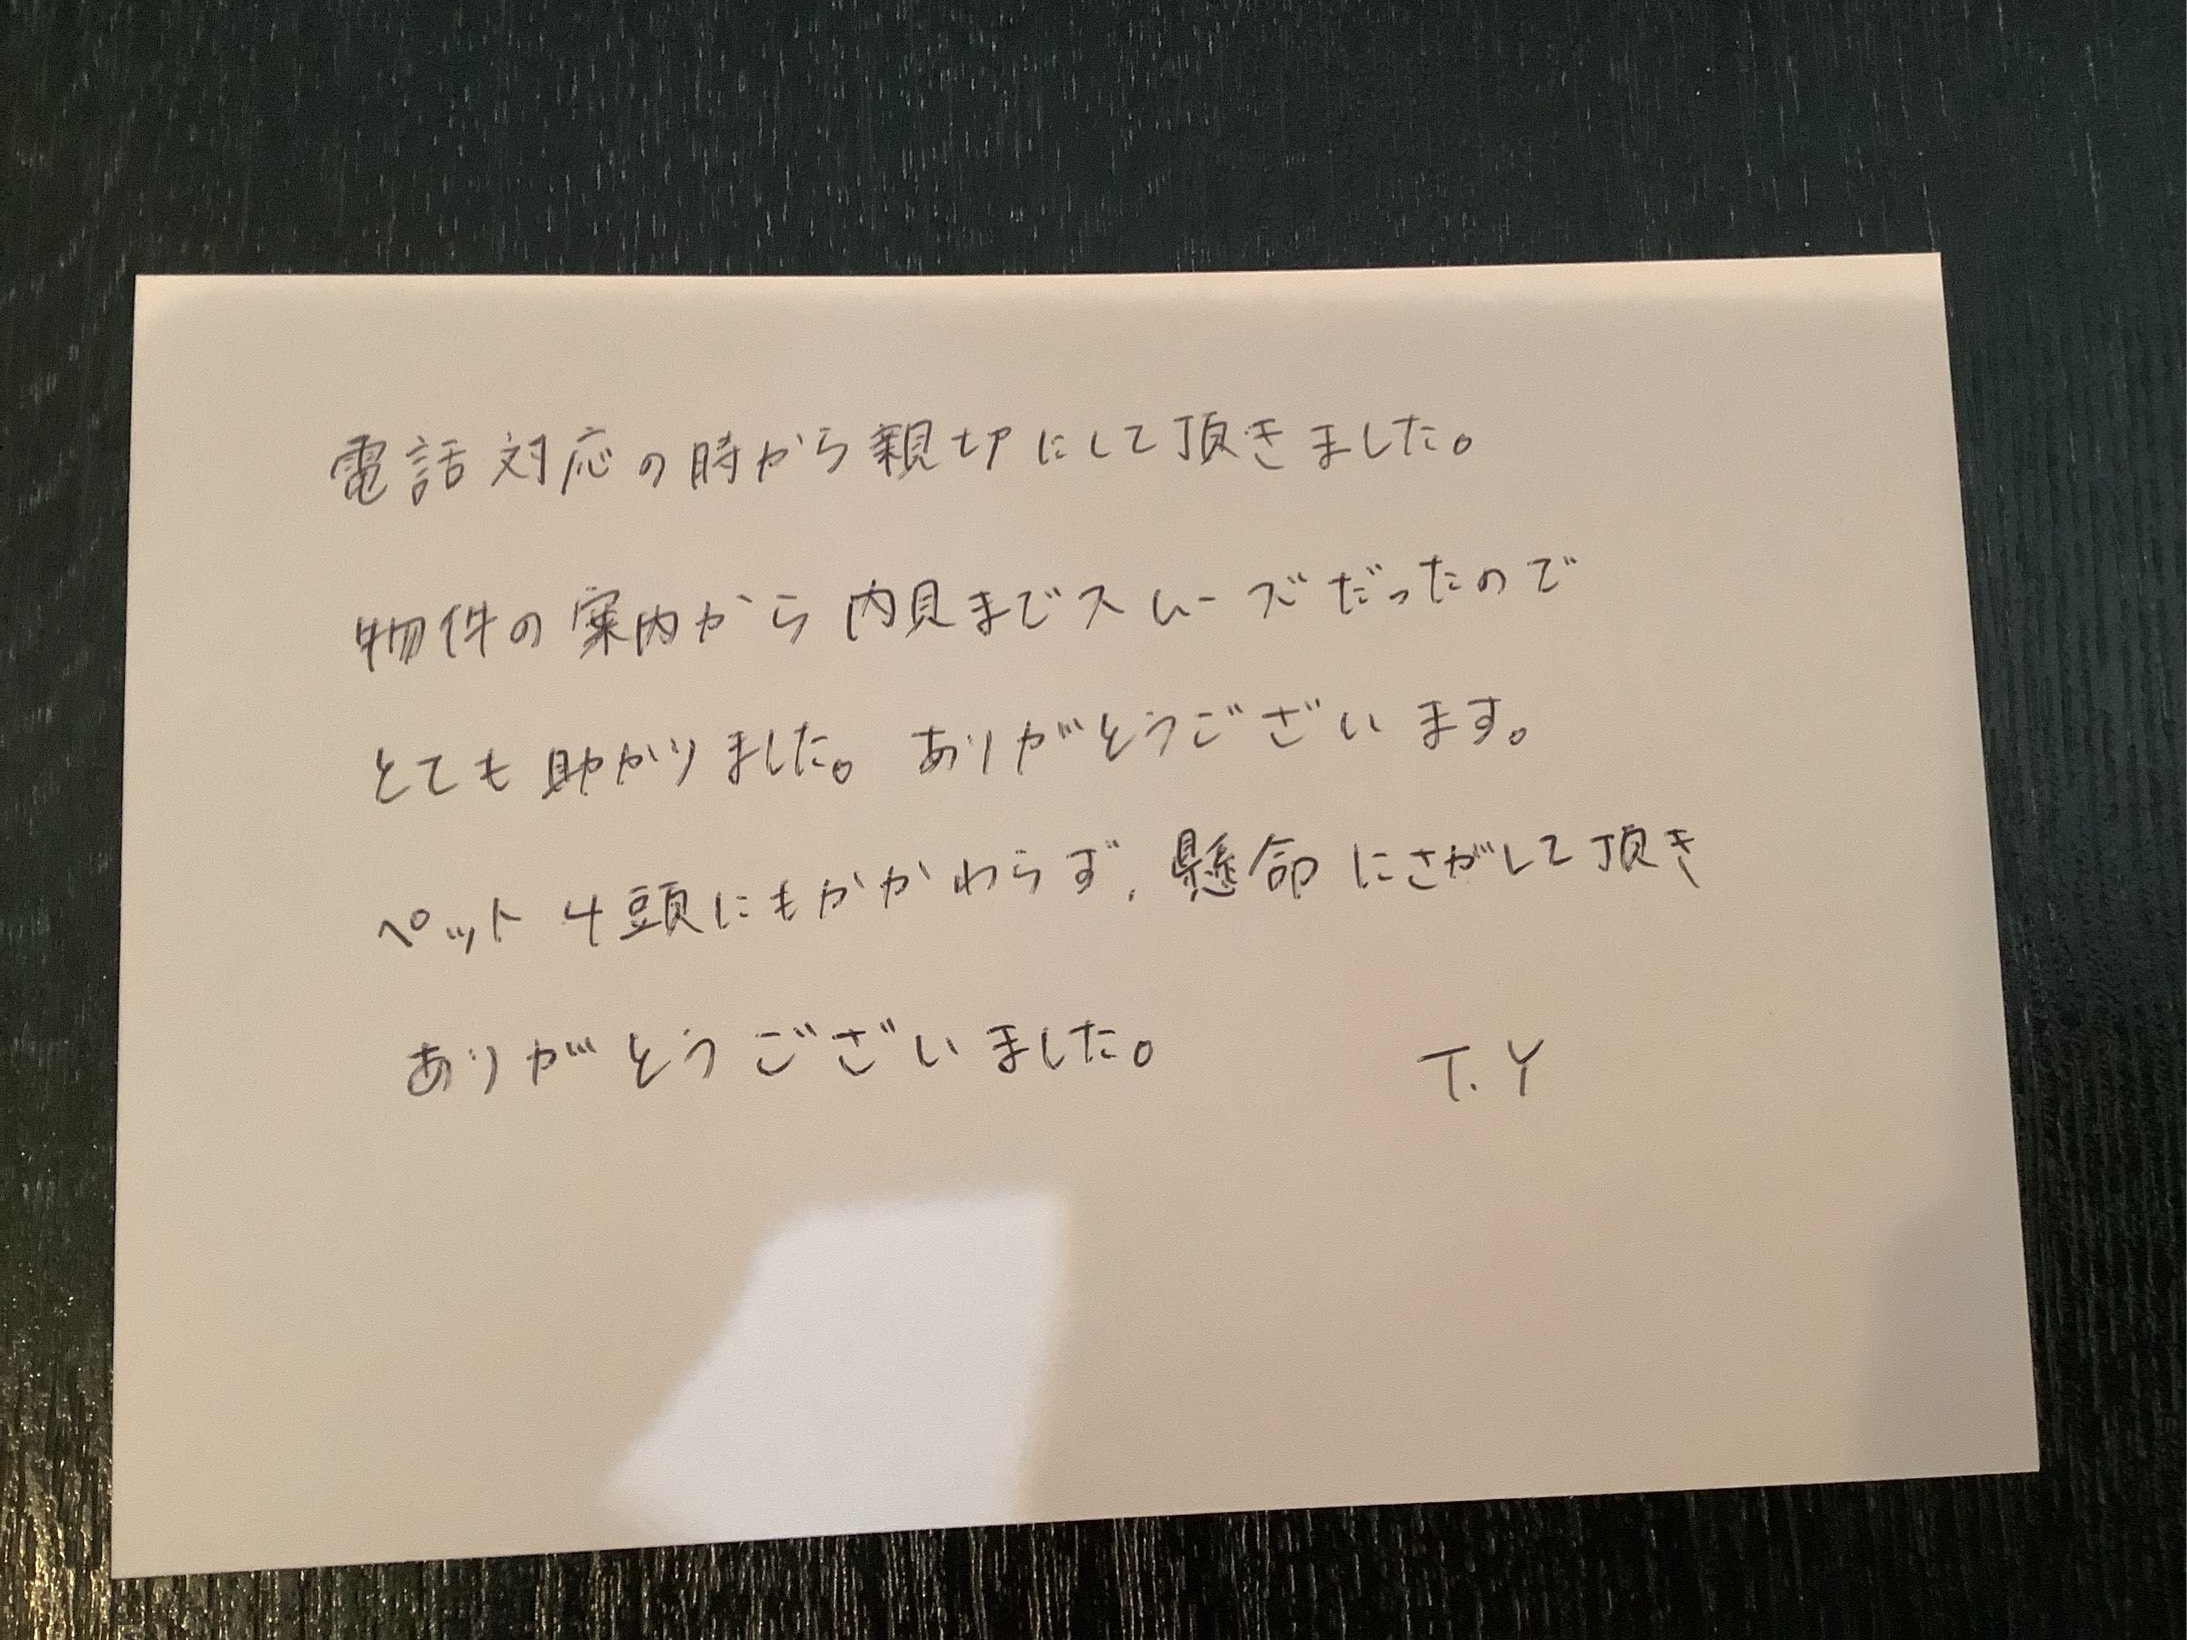 電話対応の時から親切にして頂きました。
物件の案内から内見までスムーズだったので
とても助かりました。ありがとうございます。
ペット4頭にもかかわらず、懸命にさがして頂き
ありがとうございました。 T.Y